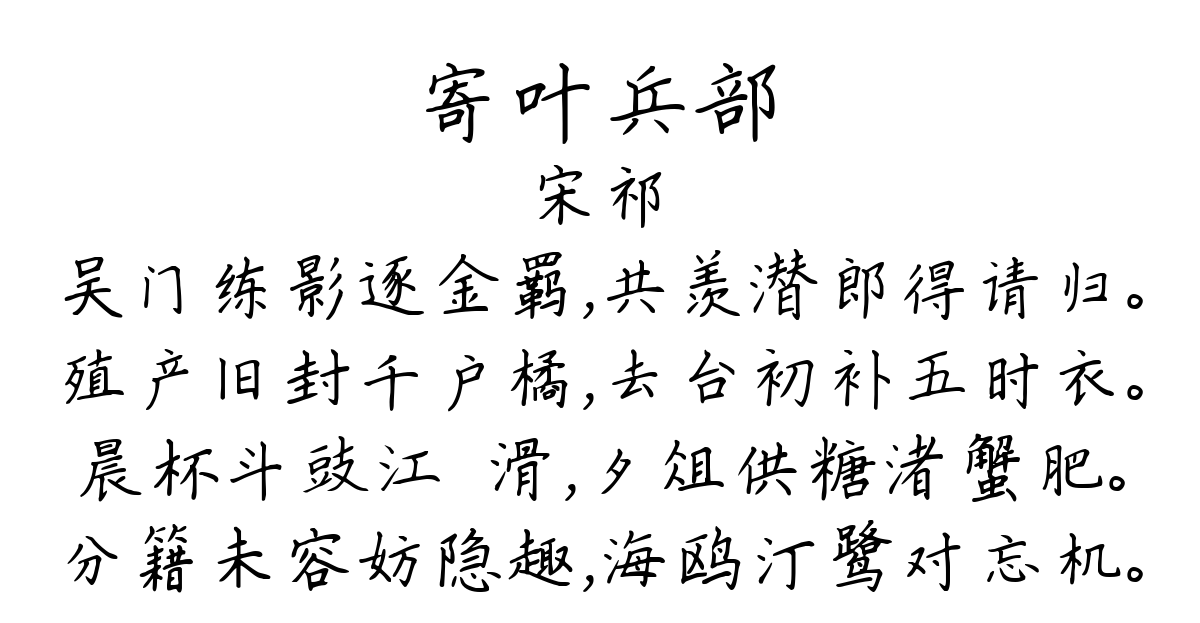 寄叶兵部
宋祁
吴门练影逐金羁,共羡潜郎得请归。
殖产旧封千户橘,去台初补五时衣。
晨杯斗豉江 滑,夕俎供糖渚蟹肥。
分籍未容妨隐趣,海鸥汀鹭对忘机。